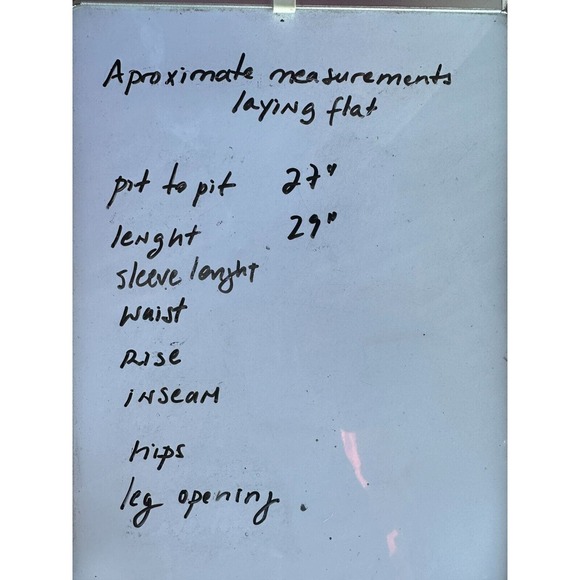 Aproximate measurements
laying flat
pit to pit 27"
lenght 29"
sleeve lenght
waist
Rise
inseam
hips
leg opening.